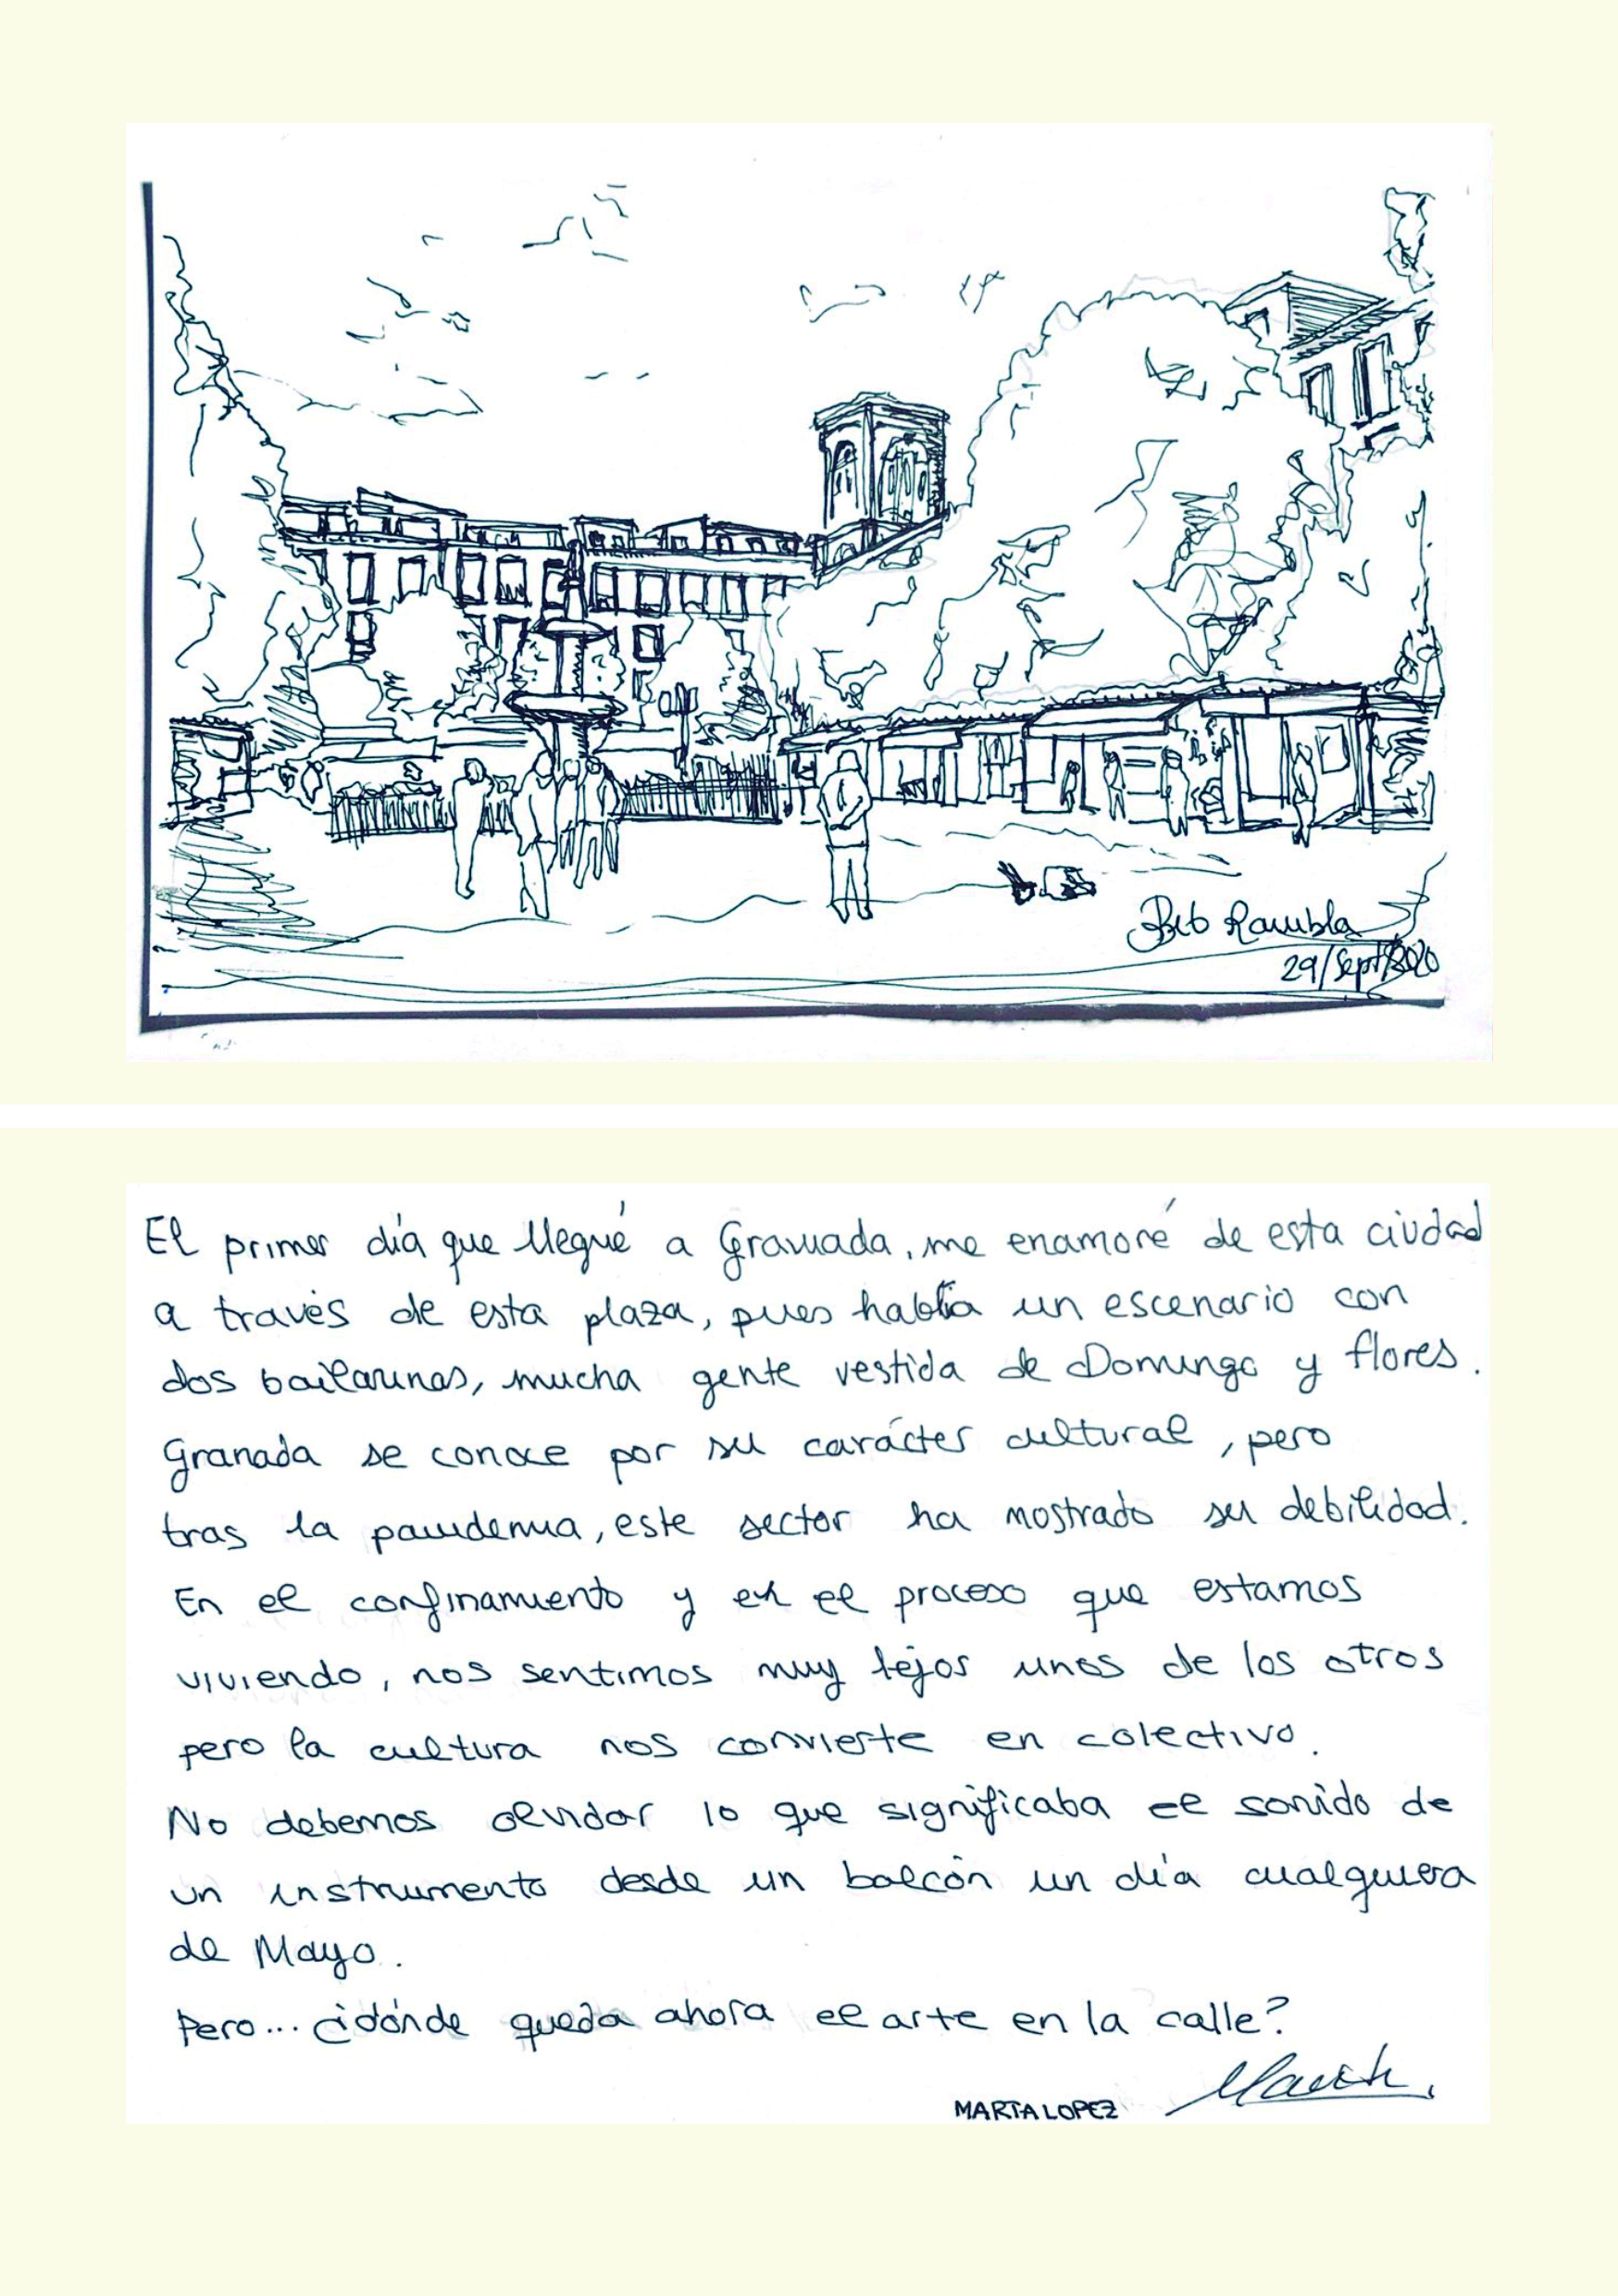 Bib Rambla
29/Sept/2020
El primer día que llegué a Granada, me enamoré de esta ciudad
a través de esta plaza, pues había un escenario con
dos bailarinas, mucha gente vestida de Domingo y flores.
Granada se conoce por su carácter cultural, pero
tras la pandemia, este sector ha mostrado su debilidad.
En el confinamiento y en el proceso que estamos
viviendo, nos sentimos muy lejos unos de los otros
pero la cultura nos convierte en colectivo.
No debemos olvidar lo que significaba el sonido de
un instrumento desde un balcón un día cualquiera
de Mayo.
Pero... ¿dónde queda ahora el arte en la calle?
MARTA LOPEZ